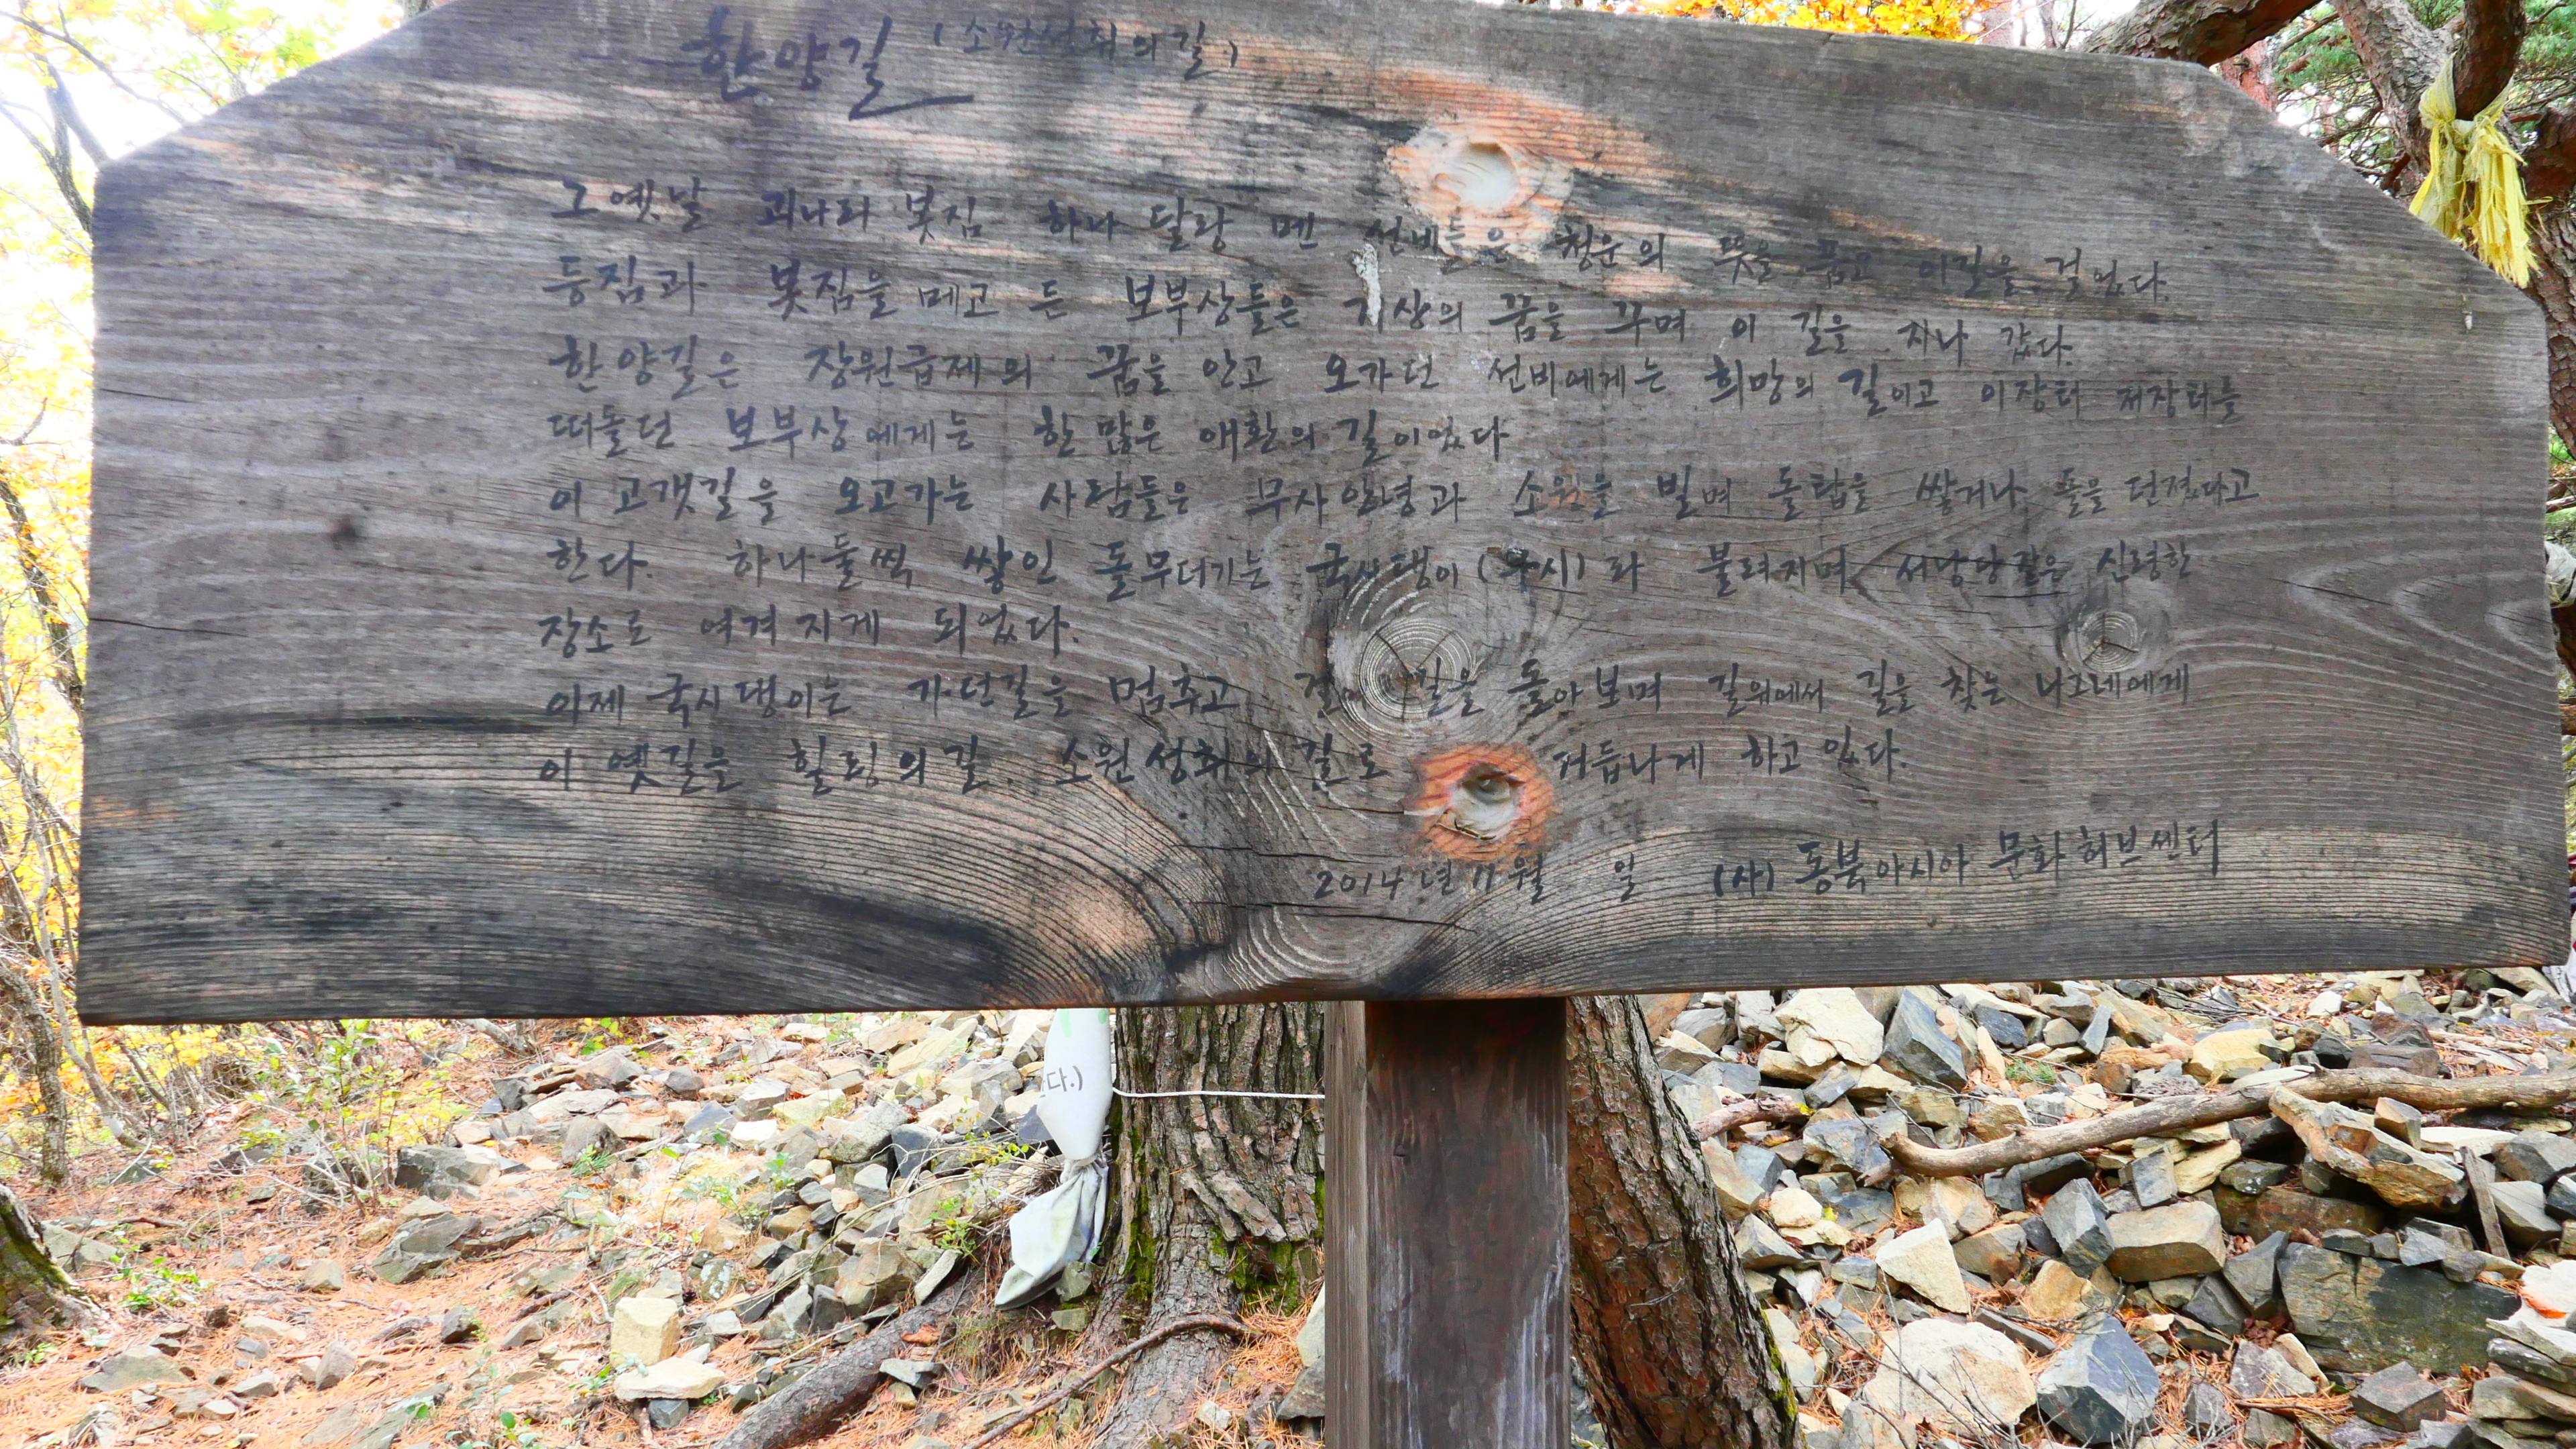 한양길 (소원성취의길)
그 옛날 괴나리 봇짐 하나 달랑 멘 선비들은 청운의 뜻을 품고 이길을 걸었다.
등짐과 봇짐을 메고 든 보부상들은 거상의 꿈을 꾸며 이 길을 지나 갔다.
한양길은 장원급제의 꿈을 안고 오가던 선비에게는 희망의 길이고 이장터 저장터를
떠돌던 보부상에게는 한 많은 애환의 길이었다
이 고갯길을 오고가는 사람들은 무사안녕과 소원을 빌며 돌탑을 쌓거나 돌을 던졌다고
한다. 하나둘씩 쌓인 돌무더기는 국시댕이 라 불려지며 서낭당같은 신령한
장소로 여겨지게 되었다.
이제 국시댕이는 가던길을 멈추고 길을 돌아보며 길위에서 길을 찾는 나그네에게
이 옛길을 힐링의길. 소원성취의 길로 거듭나게 하고 있다.
2014년 11월 일 (사) 동북아시아 문화허브센터
다.)